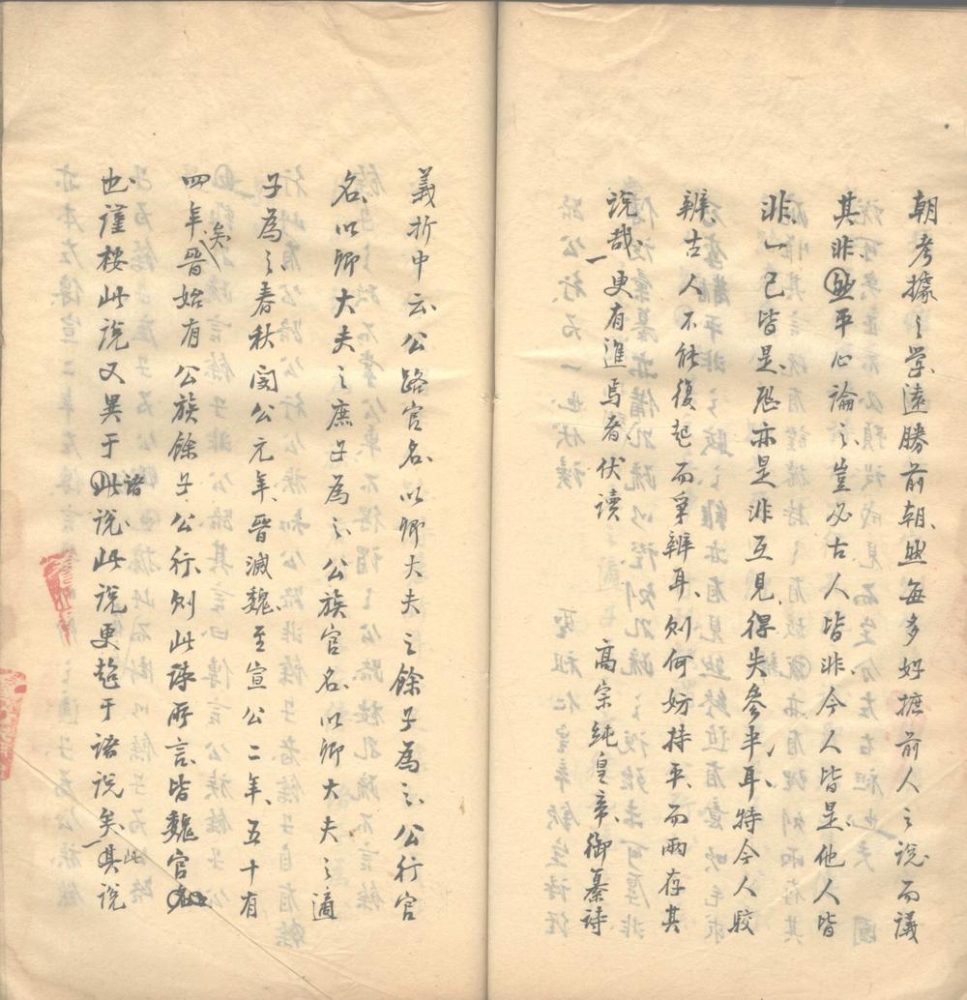 朝考據之學遠勝前朝、然每多好摭前人之說而議
其非、平心論之、豈必古人皆非、今人皆是、他人皆
非、一己皆是、恐亦是非互見、得失參半耳、特今人駁
辨、古人不能復起而爭辨耳、則何妨持平、而兩存其
說哉、更有進焉者、伏讀 高宗純皇帝御纂詩
義折中云、公路官名、以卿大夫之餘子為之、公行官
名、以卿大夫之庶子為之、公族官名、以卿大夫之適
子為之、春秋閔公元年、晉滅魏、至宣公二年、五十有
四年矣、晉始有公族餘子公行、則此詩所言、皆魏官
也、謹桉此說又異于諸說、此說更趋于諸說矣、此其說